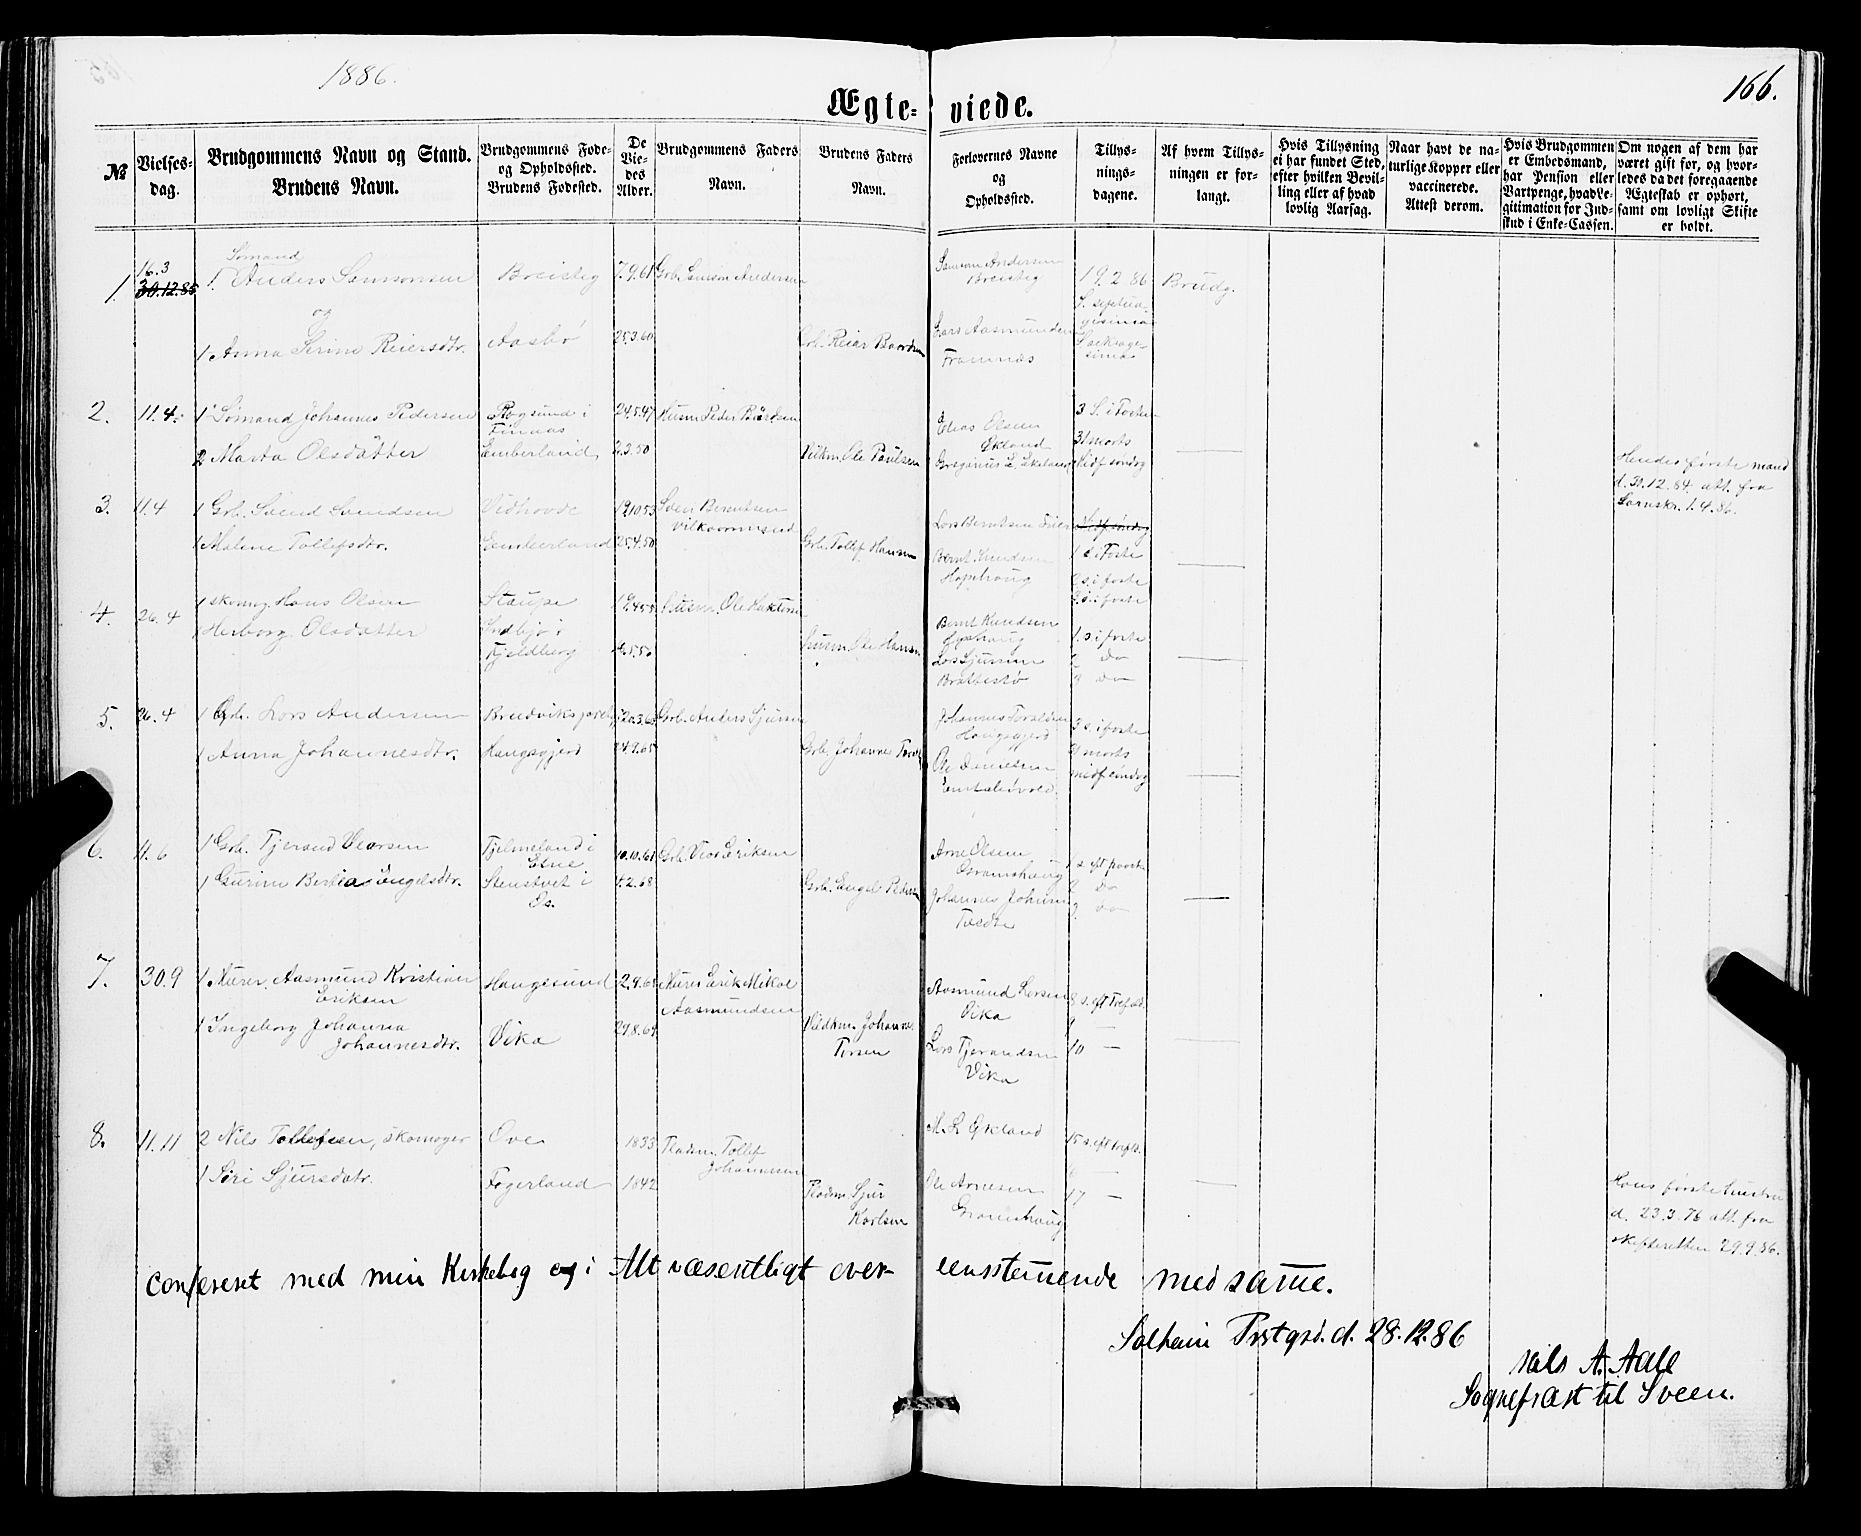 1886.
166.
Ægte- viede.
№
Vielses-
dag.
Brudgommens Navn og Stand.
Brudens Navn.
Brudgommens Føde-
og Opholdssted.
Brudens Fødested.
De
Vie-
des
Alder.
Brudgommens Faders
Navn.
Brudens Faders
Navn.
Forlovernes Navne
og
Opholdssted.
Tillys-
nings-
dagene.
Af hvem Tillys-
ningen er for-
langt.
Hvis Tillysning
ei har fundet Sted,
efter hvilken Bevil-
ling eller af hvad
lovlig Aarsag.
Naar havt de na-
turlige Kopper eller
vaccinerede.
Attest derom.
Hvis Brudgommen
er Embedsmand,
har Pension eller
Vartpenge, hvad Le-
gitimation for Ind-
skud i Enke-Cassen.
Om nogen af dem har
været gift før, og hvor-
ledes da det foregaaende
Ægteskab er ophørt,
samt om lovligt Skifte
er holdt.
1.
16.3
30.12.85
Sømand
1. Anders Samsonsen
og
1. Anna Serine Reiersdtr.
Breisteg
Aasbø
7.9.61
25.3.60
Grb. Samson Andersen
Grb. Reiar Baardsen
Samson Andersen
Breisteg
Lars Aasmundsen
Framnæs
19.2.86
S. septua-
gesima
S. sexage-
sima
Brudg.
2.
11.4.
1 Sømand Johannes Pedersen
2 Marta Olsdatter
Røgsund i
Finnaas
Emberland
24.5.47
2.3.50
Husm Peder Baardsen
Vilkm. Ole Paulsen
Elias Olsen
Økland
Gregorius L. Økland
3 S. i Faste
31 marts
Midf. søndag
Hendes første mand
d. 30.12.84 att. fra
Sorenskr. 1.4.86.
3.
11.4
1 Grb. Svend Svendsen
1 Malene Tollefsdtr.
Vidhovde
Emberland
19.10.53
25.4.50
Sven Berntsen
Vilkaarmand
Grb. Tollef Hansen
Lars Berntsen
Midf. søndag
Bernt Knudsen
Hopshaug
1 s. i Faste
2 s. i faste
3 s. i faste
4.
26.4
1 skomag. Hans Olsen
1 Herborg Olsdatter
Staupe
Indbjo i
Fjeldberg
Husm. Ole
Husm Ole Hansen
Bernt Knudsen
Hopshaug
Lars Sjursen
Brattestø
1. s. i faste
2 do
3 do
5.
26.4
1 Grb. Lars Andersen
1 Anna Johannesdtr.
Haugsgjerd
24.9.65
Grb. Anders Sjursen
Grb. Johannes
Johannes
Haugsgjerd
Ole Danielsen
3 s. i faste
31 marts
midf. søndag
6.
11.6
1 Grb. Tjerand Viarsen
1 Gurine Bertia Engelsdtr.
Tjelmeland i
Etne
Stenstvet i
Øs.
10.10.61
4.2.68
Grb. Viar Eriksen
Grb. Engel Pedersen
Arne Olsen
Gramshaug
Johannes
Tvedte
1 s. eft. paaske
2 do
3 do
7.
30.9
1. Murer Aasmund Kristian
Eriksen
1 Ingeborg Johanna
Johannesdtr.
Haugesund
Vika
29.8.64
Murer Erik Mikal
Aasmundsen
Vildkm. Johannes
Aasmund Larsen
Vika
Lars Tjerandsen
Vika
8 s. eft. Trefold.
9 —
10 —
8.
11.11
2 Nils Tollefsen, skomager
1 Siri Sjursdatr.
Ove
Fagerland
1833
1842
Pladsm. Tollef
Johannessen
Pladsm. Sjur
Karlsen
M. L. Økland
Ole Arnesen
Gramshaug
15 s. eft. trefk.
16 —
17 —
Hans første hustru
d. 23.3.76 att. fra
skifteretten 29.9.86.
confereret med min Kirkebog og i Alt væsentligt over- eensstemende med same.
Solheim Prstgrd. d. 28.12.86
Nils A. Aall
Sogneprest til Sveen.